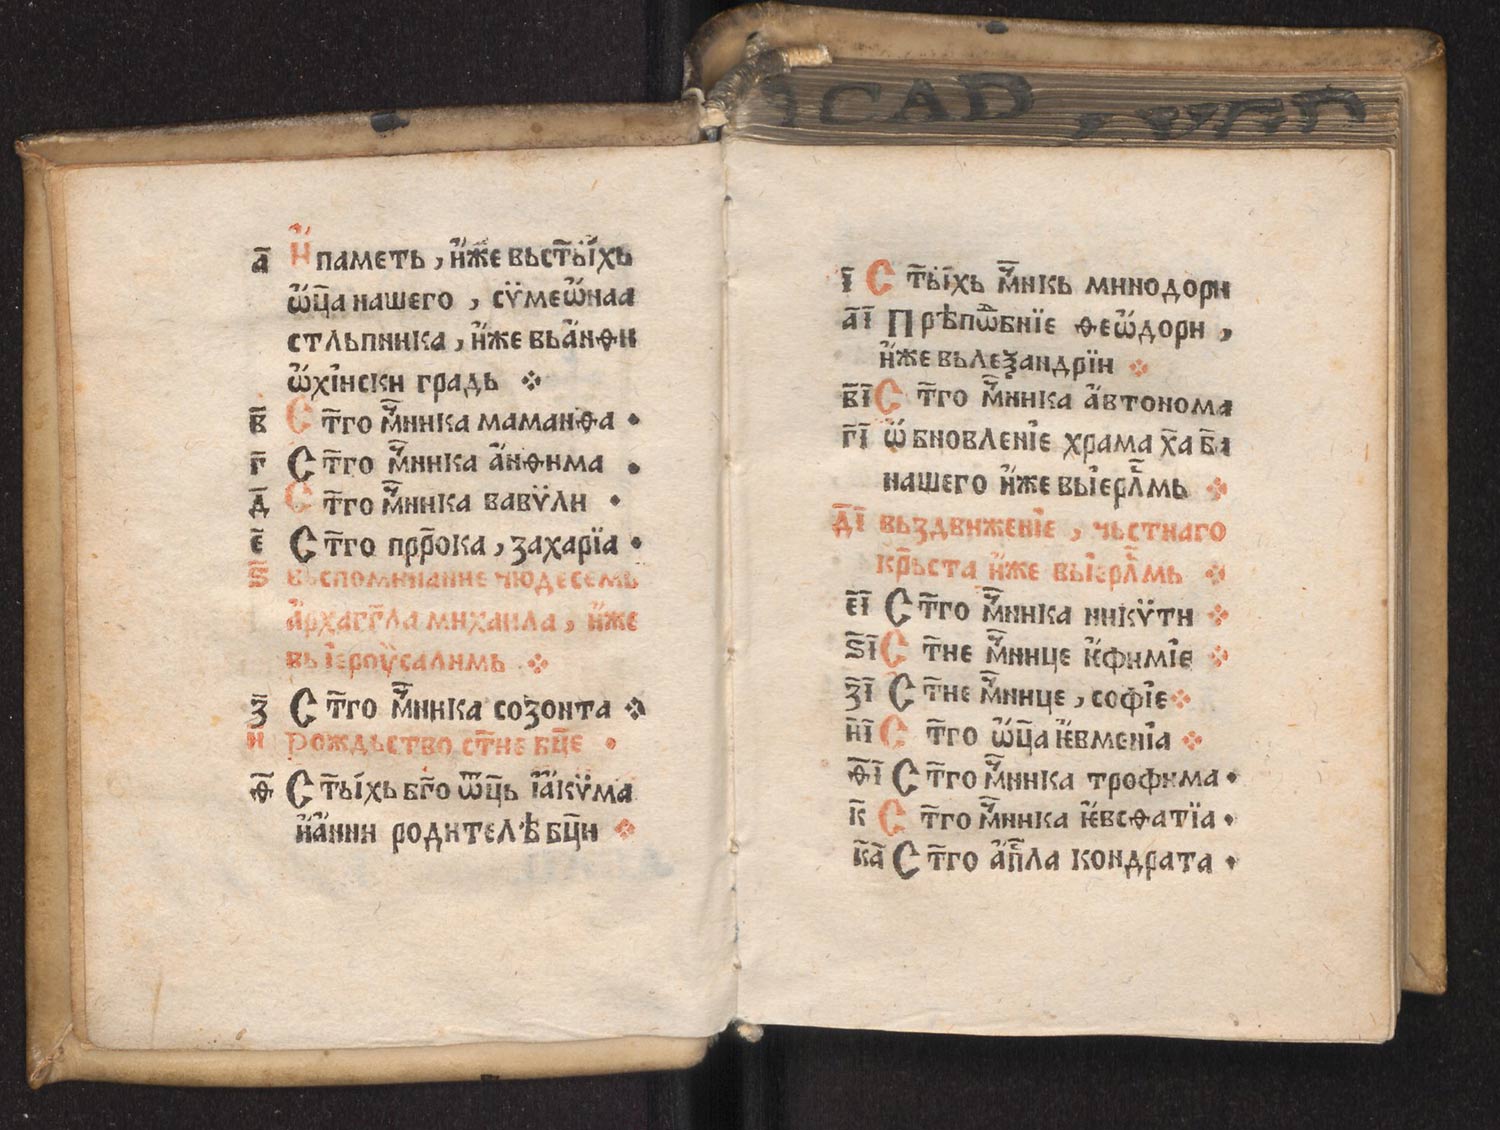 а҃ И҆ паметь , и҆же вьст҃ы́хь
ѡ҆ц҃а нашего , сѵ̈меѡ҆наа
стльпника , и҆же вьа҆нѳи
ѡ҆хі́нски градь
в҃ Ст҃го мⷱ҇ника маманѳа •
г҃ Ст҃го мⷱ҇ника а҆нѳима •
д҃ Ст҃го мⷱ҇ника вавѵ̈ли •
е҃ Ст҃го прⷪ҇рока , захарїа •
ѕ҃ вьспоминание чюдесемь
а҆рхагг҃ла михаила , и҆же
вьі́ероѵ̈салимь
з҃ Ст҃го мⷱ҇ника созонта
и҃ рождьство ст҃не бц҃е •
ѳ҃ Ст҃ы́хь бг҃о ѿц҃ь і҆а҆кѵ̈ма
и҆а҆нни родителѣ бц҃и
і҃ Ст҃ы́хь мⷱ҇никь минодори
а҃і Прѣпѡⷣбнїе ѳеѡ҆дори ,
и҆же вьлеѯандрїи
в҃і Ст҃го мⷱ҇ника а҆втонома
г҃і Ѡ҆бновленїе храма х҃а б҃а
нашего и҆же выерлⷭ҇мь
д҃і вьздвижение , чьстнаго
кр҃ьста и҆же выерлⷭ҇мь
е҃і Ст҃го мⷱ҇ника никѵ̈ти
ѕ҃і Ст҃не мⷱ҇нице є҆фиміе
з҃і Ст҃не мⷱ҇нице , софїе
и҃і Ст҃го ѡ҆ц҃а є҆вменїа
ѳ҃і Ст҃го мⷱ҇ника трофима •
к҃ Ст҃го мⷱ҇ника є҆всѳатїа •
к҃а Ст҃го а҆пⷭ҇ла кондрата •